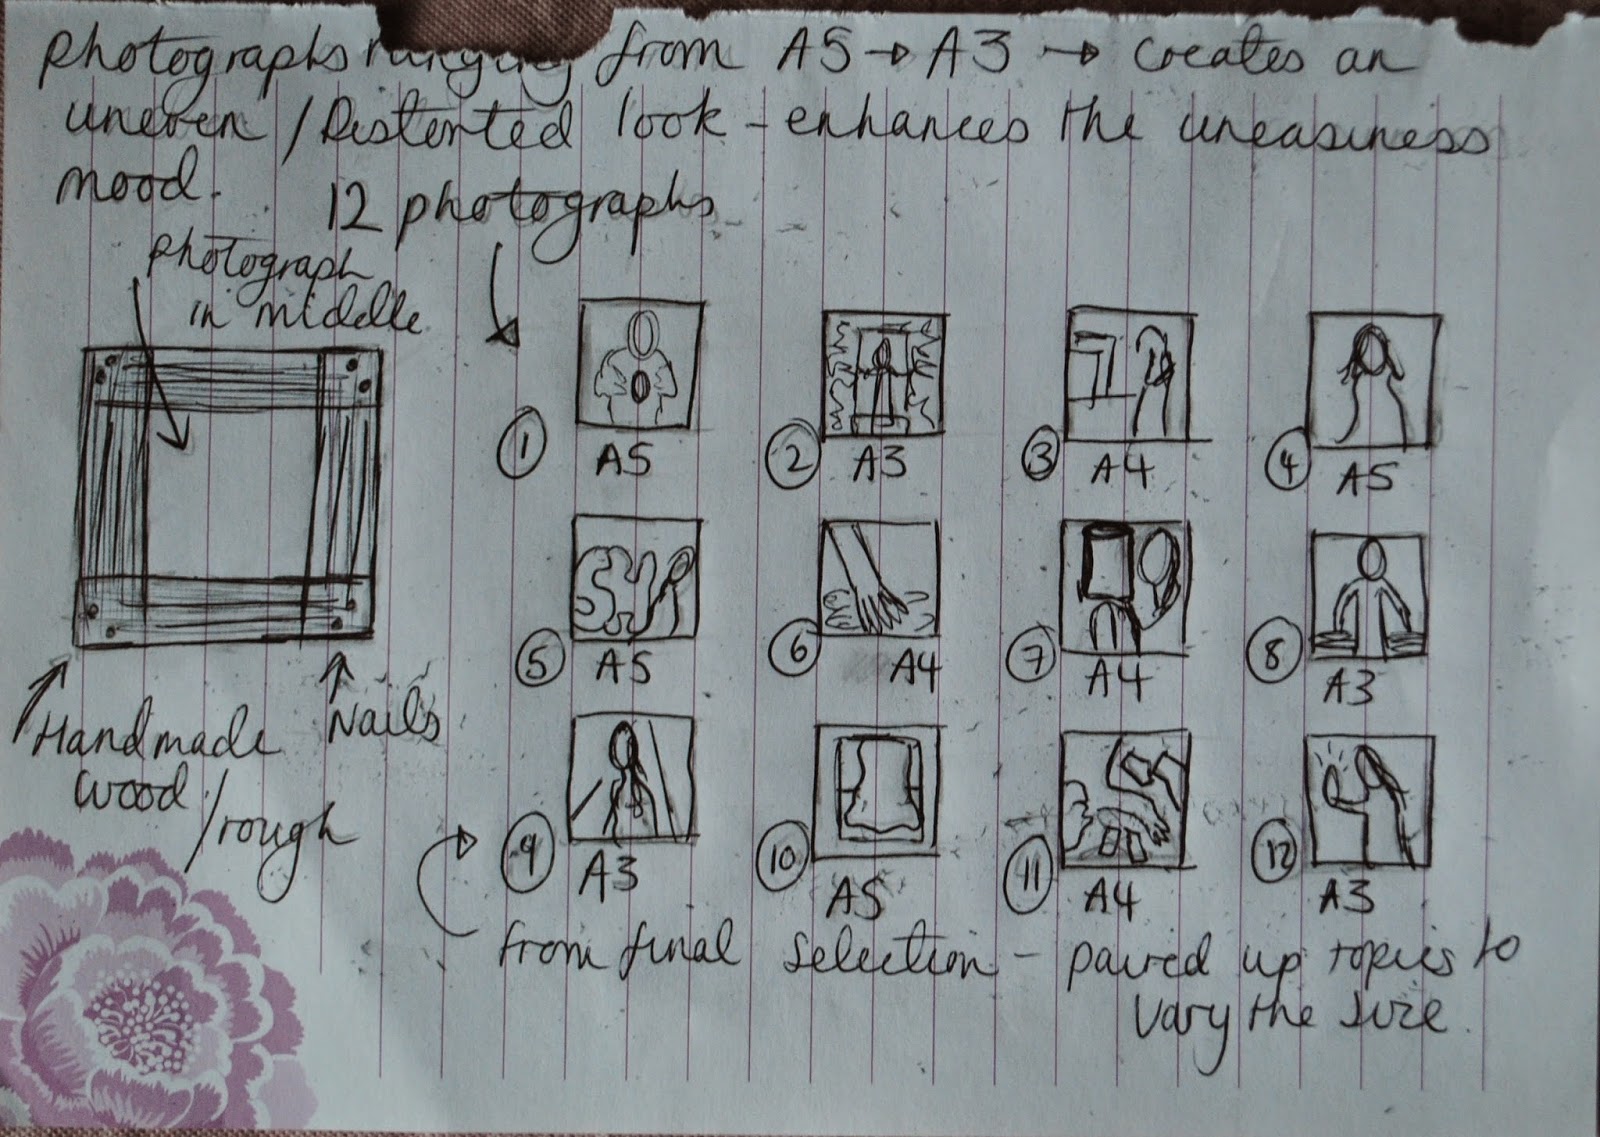 photographs ranging from A5 → A3 → creates an
uneven / Distorted look - enhances the uneasiness
mood.
12 photographs
photograph
in middle
Handmade
wood /
rough
Nails
1 A5
2 A3
3 A4
4 A5
5 A5
6 A4
7 A4
8 A3
9 A3
10 A5
11 A4
12 A3
from final selection - paired up topics to
vary the size.